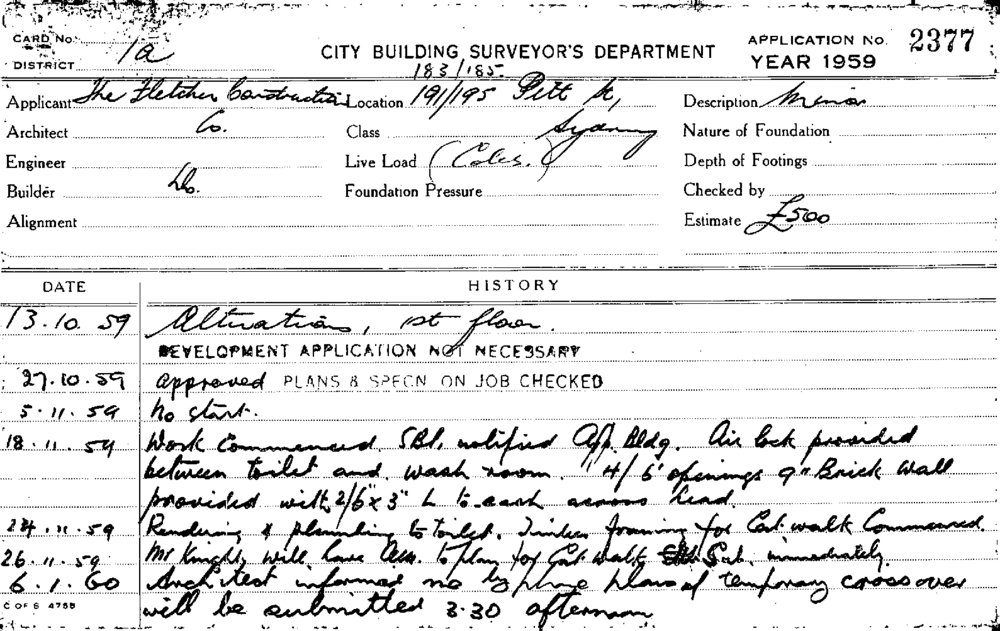 CARD No.
DISTRICT 1a
CITY BUILDING SURVEYOR'S DEPARTMENT
APPLICATION No. 2377
YEAR 1959
183/185
Applicant The Fletcher Construction Location 191/195 Pitt St, Description Minor
Architect Co. Class Sydney Nature of Foundation
Engineer Live Load (Coles.) Depth of Footings
Builder do. Foundation Pressure Checked by
Alignment Estimate £500
DATE HISTORY
13.10.59 Alterations, 1st floor.
DEVELOPMENT APPLICATION NOT NECESSARY
27.10.59 approved PLANS & SPECN ON JOB CHECKED
5.11.59 No start.
18.11.59 Work Commenced. notified Bldg. Air lock provided
between toilet and wash room. 4/6 openings 9" Brick Wall
provided with 2/6"x3" L to each across head.
24.11.59 Rendering & plumbing to toilet. Timber framing for Cat walk Commenced
26.11.59 Mr Knight, will have to plan for Cat walk Sub. immediately.
6.1.60 Architect informed me by phone plans of temporary crossover
will be submitted 3.30 afternoon
C OF S 4758